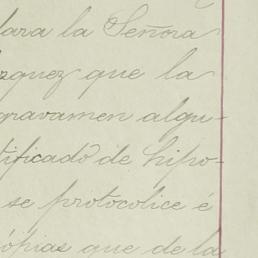 lara la Señora
zquez que la
gravamen algu-
tificado de hipo-
se protocolice é
ópias que de la